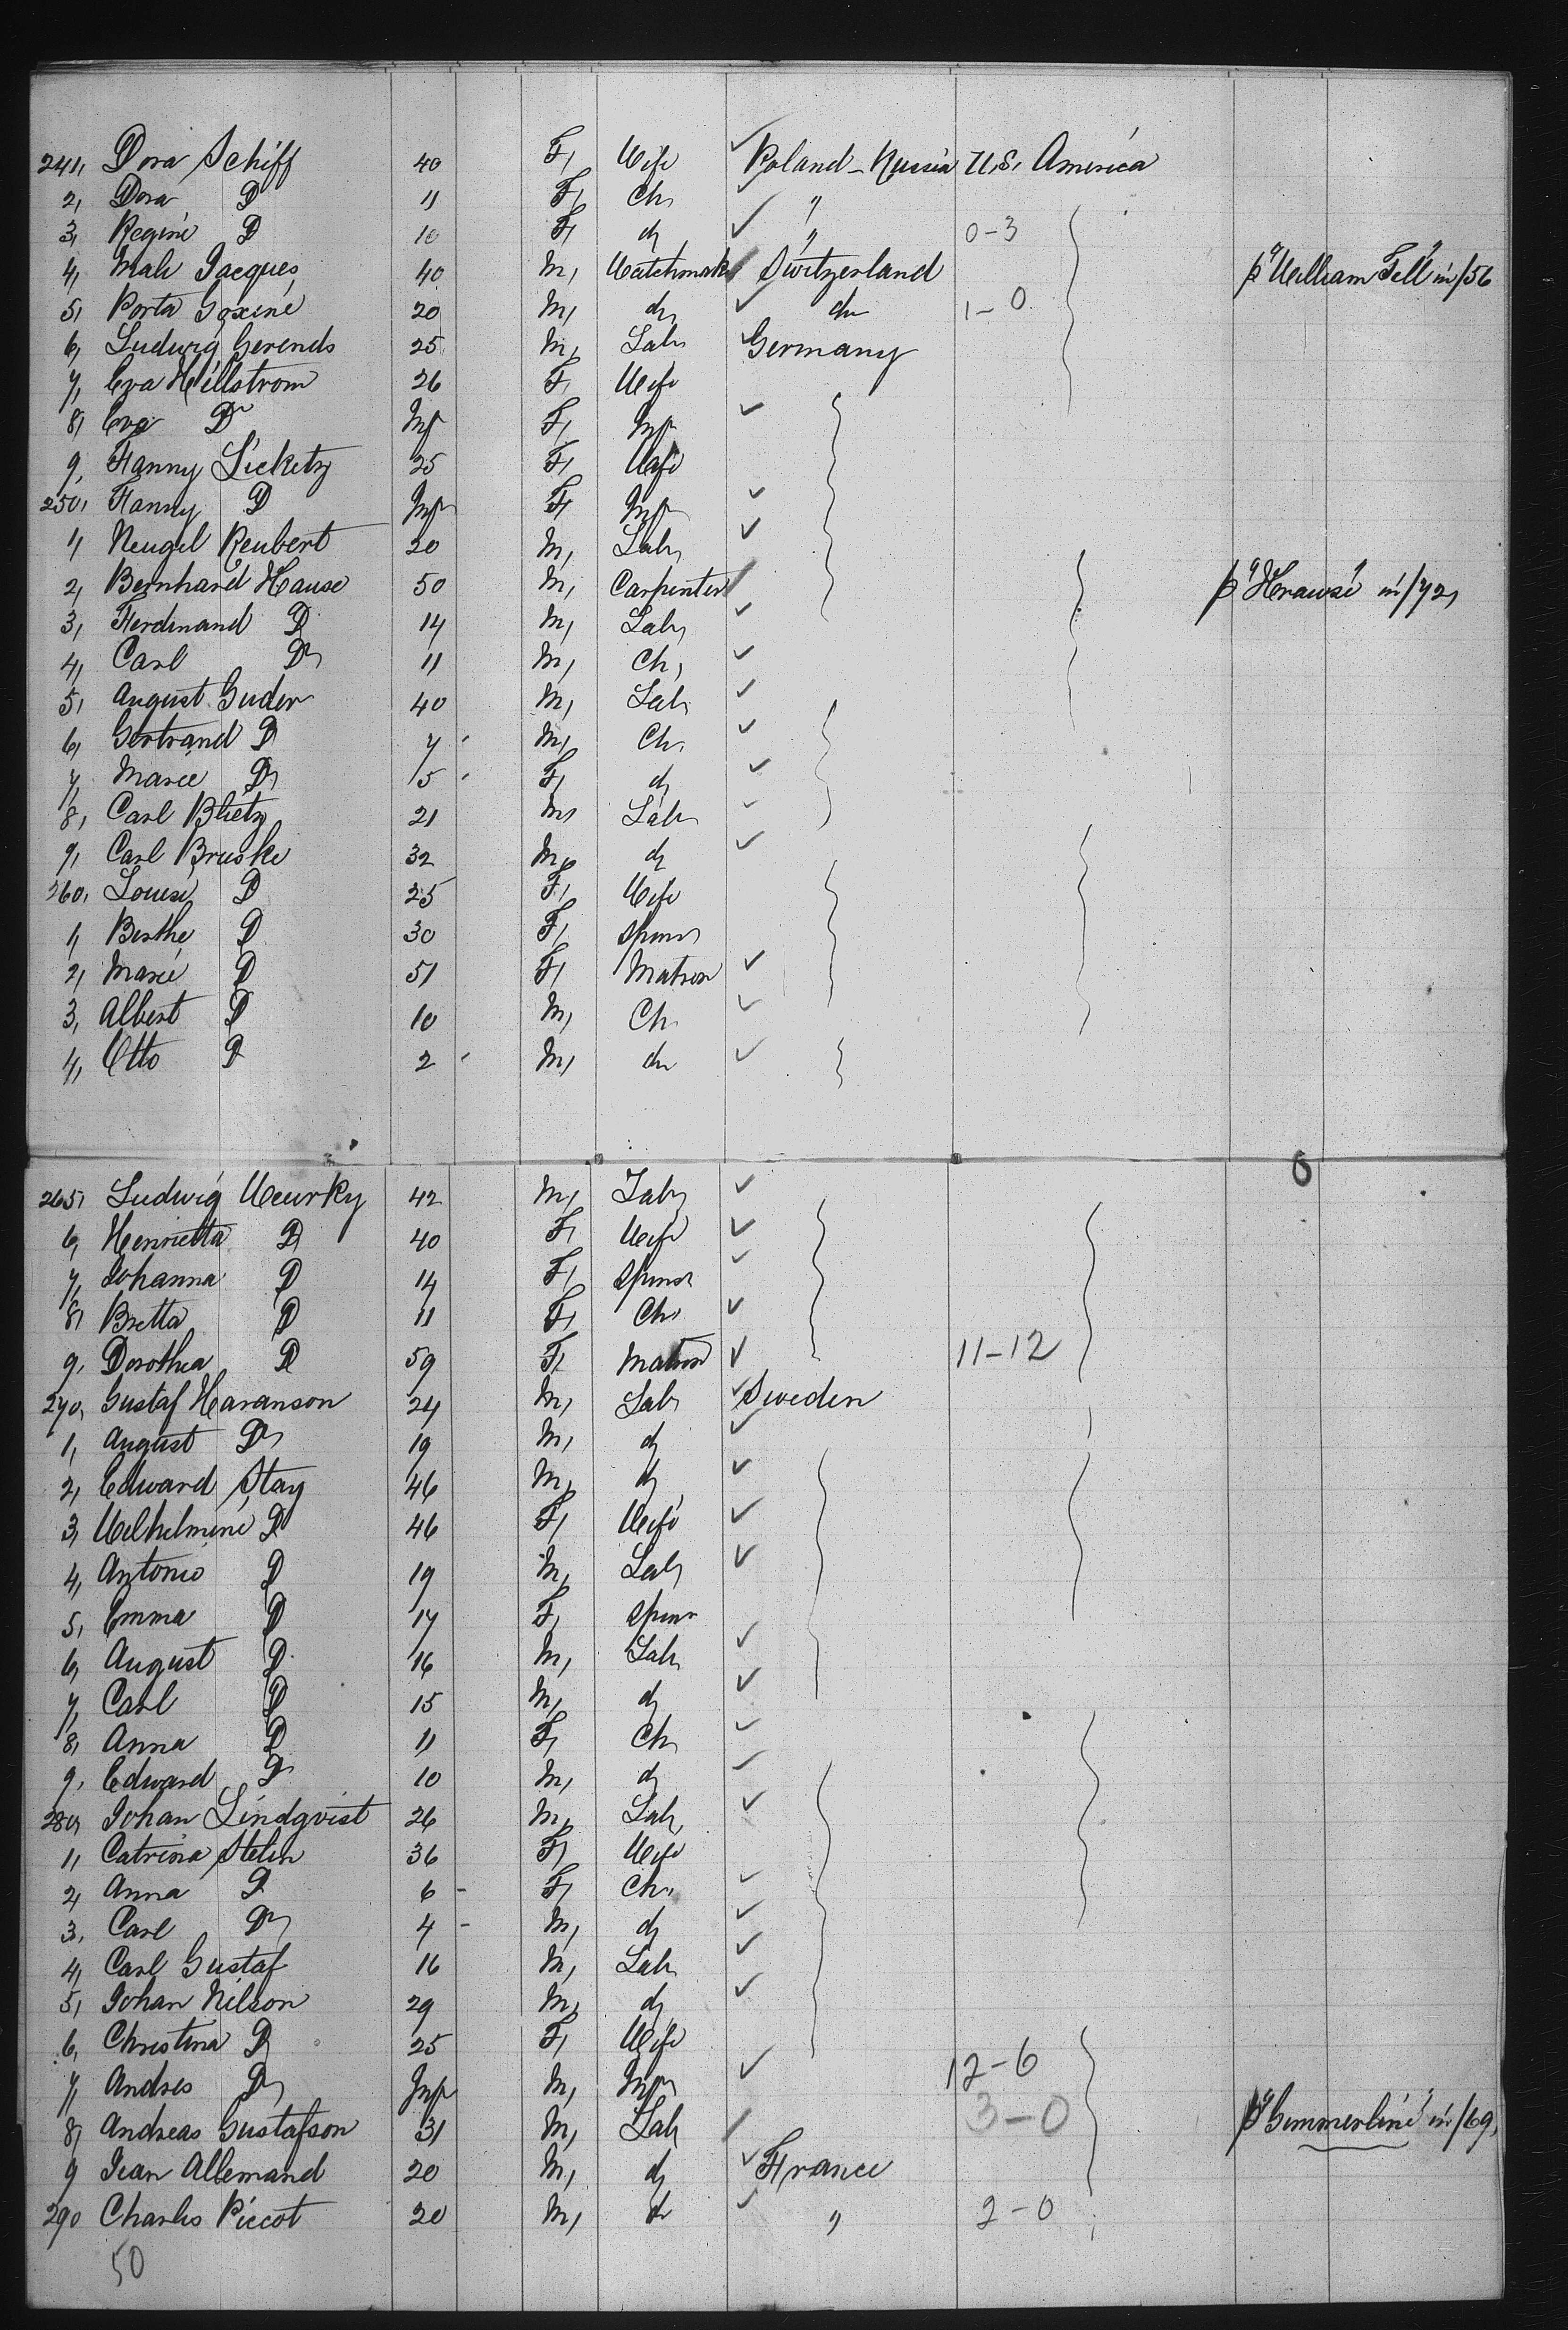 241, Dora Schiff 40 F, Wife Poland-Russia U.S. America
2, Dora Do 11 F, Ch, "
3, Regine Do 10 F, do " 0-3
4, Mali Jacques 40 M, Watchmak Switzerland p "William Tell" in /56
5, Porta 20 M, do do 1-0
6, Ludwig Gerends 25 M, Labr Germany
7, Eva Hillstrom 26 F, Wife
8, Eva Do Inf F, Inf
9, Fanny Licketz 25 F, Wife
250, Fanny Do Inf F, Inf
1, Neugel Reubert 20 M, Labr
2, Bernhard Hause 50 M, Carpenter p "Hrause" in /72,
3, Ferdinand Do 14 M, Labr
4, Carl Do 11 M, Ch,
5, August Guder 40 M, Labr
6, Gertrand Do 7 M, Ch,
7, Marie Do 5 F, do
8, Carl Blietz 21 M, Labr
9, Carl Bruske 32 M, do
260, Louise Do 25 F, Wife
1, Berthe Do 30 F, Spinsr
2, Marie Do 51 F, Matron
3, Albert Do 10 M, Ch,
4, Otto Do 2 M, do
265, Ludwig 42 M, Labr
6, Henrietta Do 40 F, Wife
7, Johanna Do 14 F, Spinsr
8, Bretta Do 11 F, Ch,
9, Dorothea Do 59 F, Matron 11-12
270, Gustaf Haranson 24 M, Labr Sweden
1, August Do 19 M, do
2, Edward Stay 46 M, do
3, Wilhelmine Do 46 F, Wife
4, Antonio Do 19 M, Labr
5, Emma Do 17 F, Spinsr
6, August Do 16 M, Labr
7, Carl Do 15 M, do
8, Anna Do 11 F, Ch,
9, Edward Do 10 M, do
280, Johan Lindqvist 26 M, Labr
1, Catrina Stelin 36 F, Wife
2, Anna Do 6 F, Ch,
3, Carl Do 4 M, do
4, Carl Gustaf 16 M, Labr
5, Johan Nilson 29 M, do
6, Christina Do 25 F, Wife
7, Andres Do Inf M, Inf 12-6
8, Andreas Gustafson 31 M, Labr 3-0 p "Gummerline" in /69,
9 Jean Allemand 20 M, do France
290 Charles Piccot 20 M, do " 2-0
50